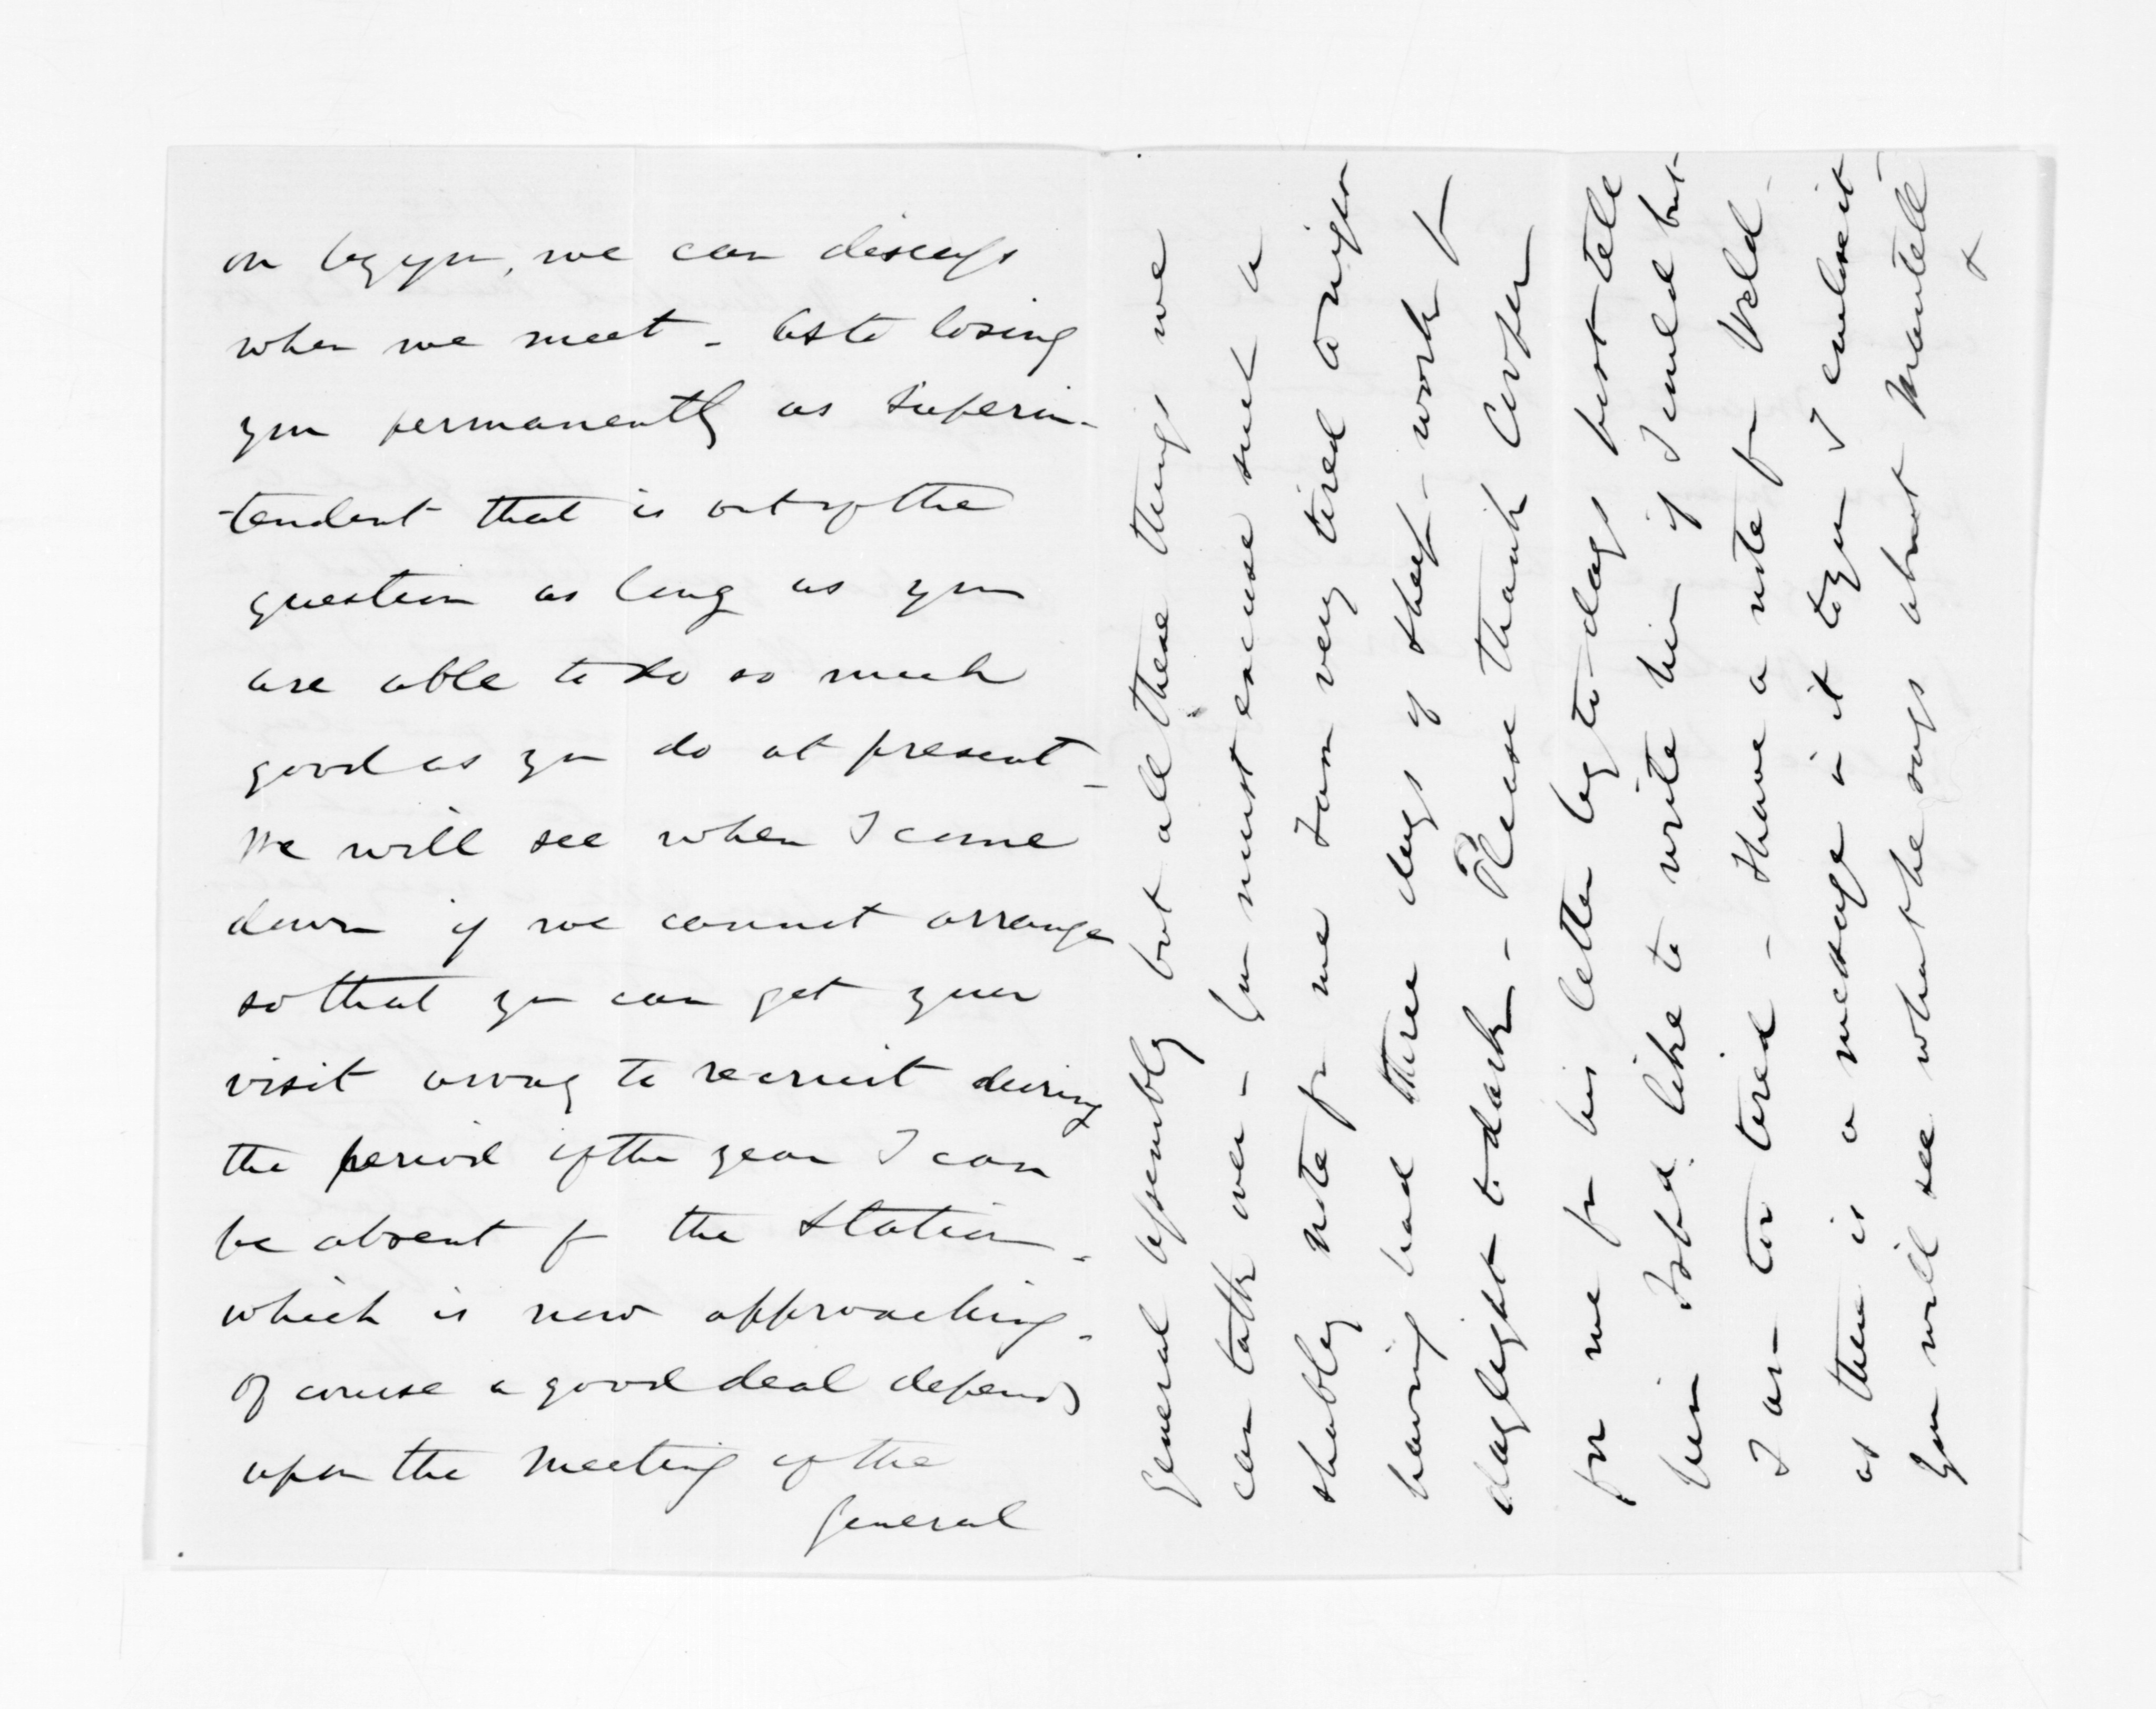 on by you, we can discuss
when we meet - As to losing
you permanently as Superin-
-tendent that is out of the
question as long as you
are able to do so much
good as you do at present -
We will see when I come
down if we cannot arrange
so that you can get your
visit away to recruit during
the period of the year I can
be absent fr the Station -
which is now approaching -
Of course a good deal depends
upon the meeting of the
General
General Assembly but all these things we
can talk over - You must excuse such a
shabby note fr me I am very tired tonight
having had three days of sheep-work fr
daylight to dark - Please thank Cooper
for me for his letter by to-days post tell
him I shd. like to write him if I could but
I am too tired - I have a note fr Weld -
as there is a message in it to you I enclose it
You will see what he says about Mantell